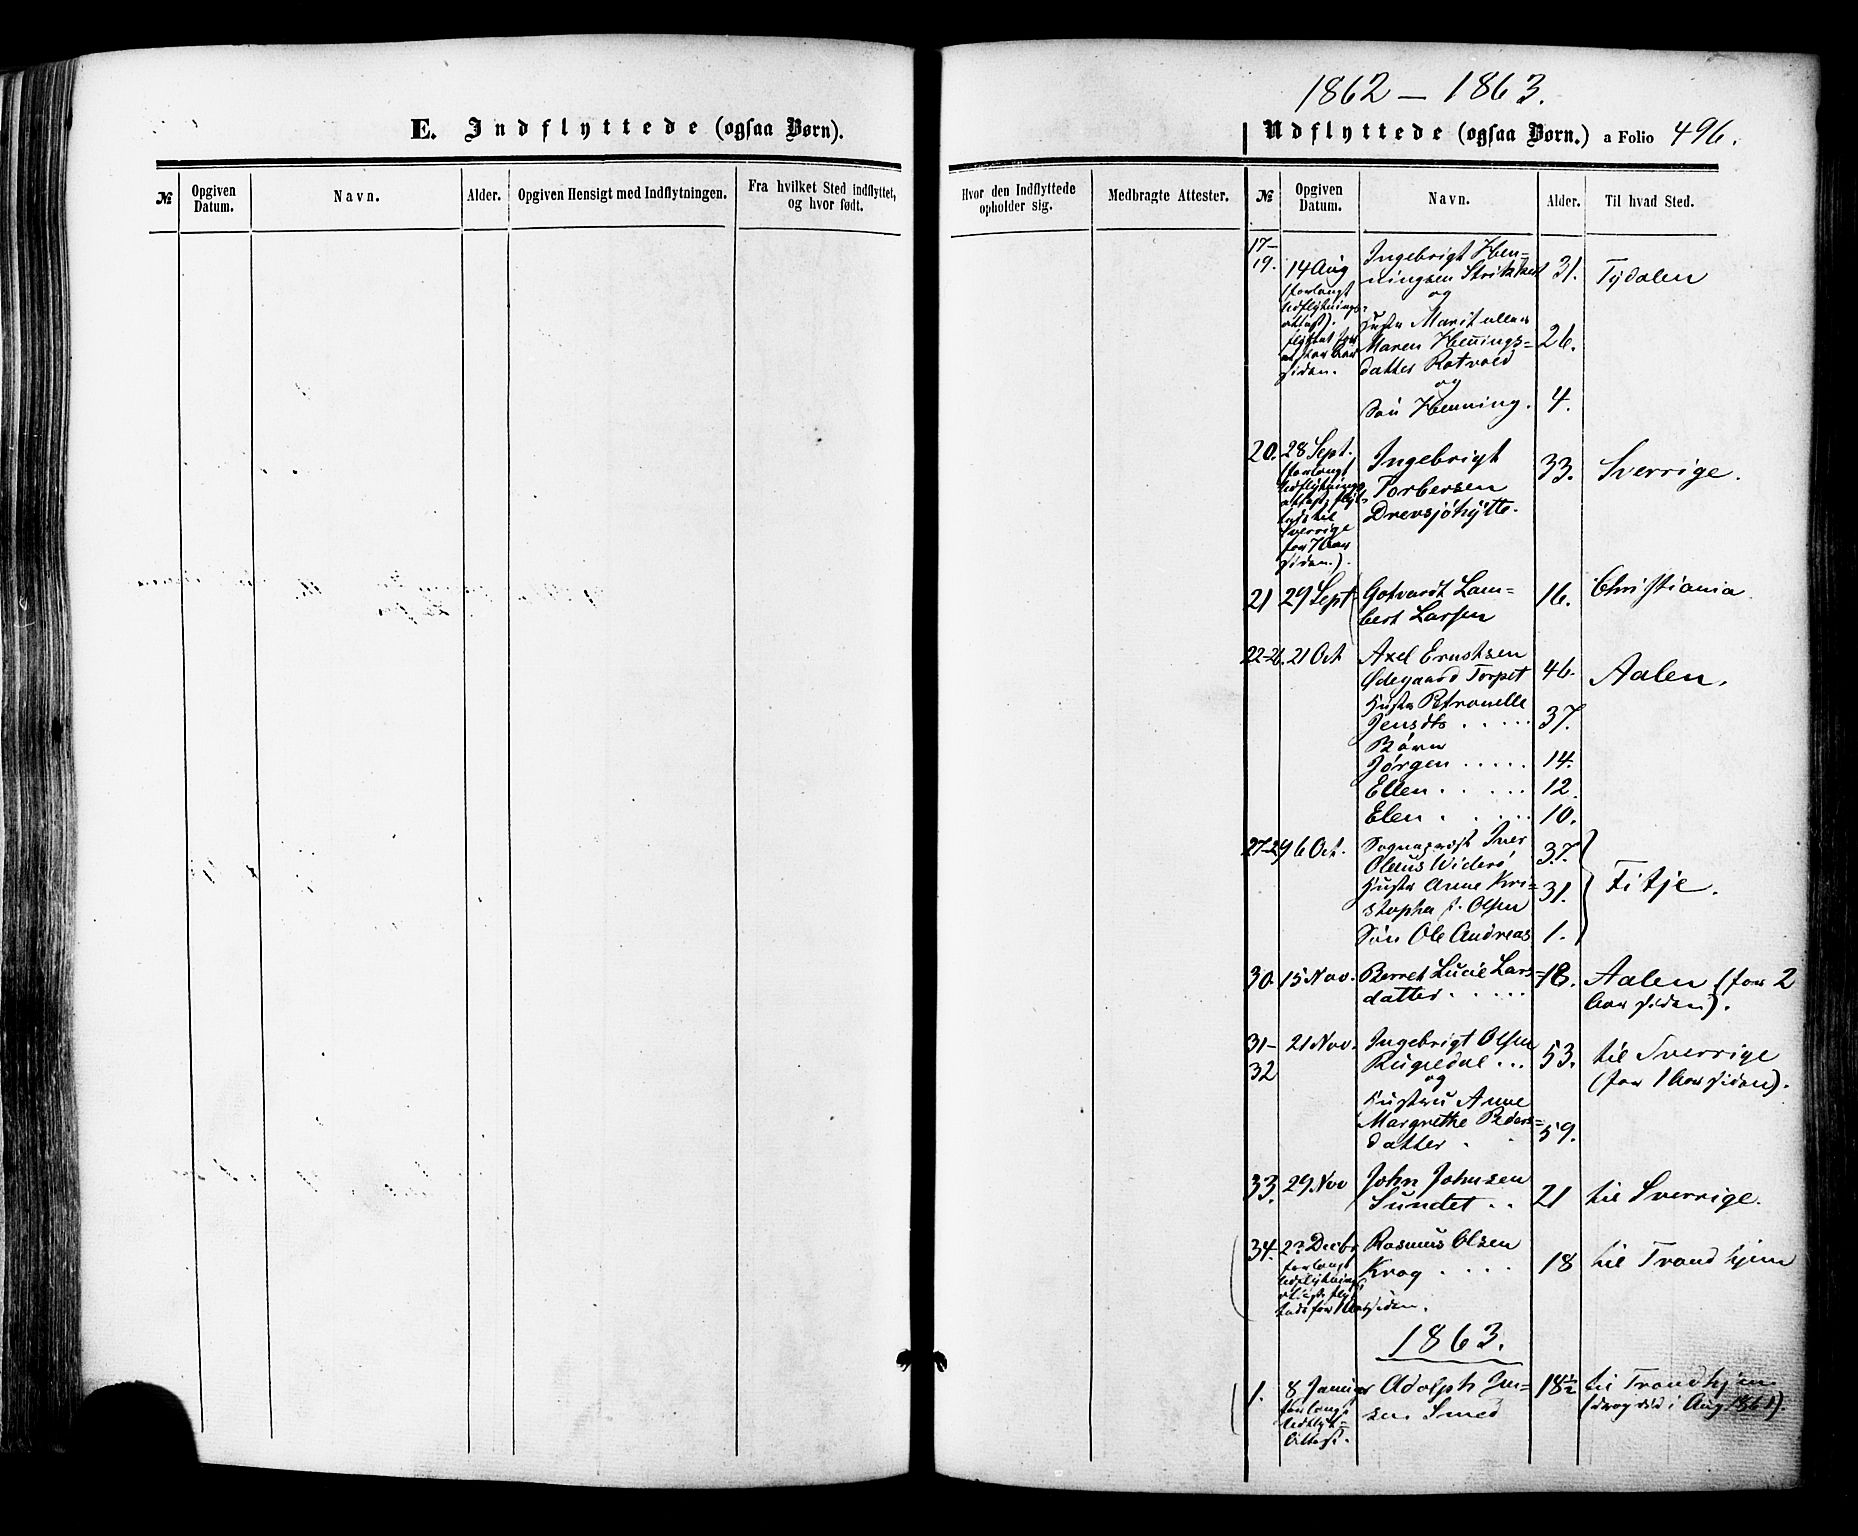 1862 — 1863.
E. Indflyttede (ogsaa Børn).
Udflyttede (ogsaa Børn.) a Folio 496.
№
Opgiven Datum.
Navn.
Alder.
Opgiven Hensigt med Indflytningen.
Fra hvilket Sted indflyttet, og hvor født.
Hvor den Indflyttede opholder sig.
Medbragte Attester.
№
Opgiven Datum.
Navn.
Alder.
Til hvad Sted.
17-
19.
14 Aug
(forlangt
Udflytnings-
attest).
siden.
Ingebrigt Hen=
ningsen
og
Hustr Marit eller
Maren Hennings=
datter Rotvold
og
Søn Henning.
31.
26.
4.
Tydalen
20.
28 Sept.
(forlangt
Udflytnings
attest, flyt-
tede til
Sverrige
for 7 Aar
siden.).
Ingebrigt
Torbersen
Drevsjöhytte.
33.
Sverrige.
21
29 Sept
Gotvardt Lam=
bert Larsen
16.
Christiania.
22-26.
21 Oct
Axel Erntsen
Ødegaard Torpet
Hustr Petronelle
Jensdtr
Børn
Jørgen
Ellen
Elen
46.
37.
14.
12.
10.
Aalen.
27-29
6 Oct.
Sognepræst Iver
Olaus Widerö
Hustr Anne Kri=
stopha f. Olsen
Søn Ole Andreas
37.
31.
1.
Fitje.
30.
15 Nov.
Berret Lucie Lars=
datter
18.
Aalen (for 2
Aar siden).
31-
32
21 Nov.
Ingebrigt Olsen
Rugeldal
og
Hustru Anne
Margrethe Peders=
datter
53.
59.
til Sverrige
(for 1 Aar siden).
33.
29 Nov
John Johnsen
Sundet
21
til Sverrige.
34.
2? Decbr
forlangt
Udflytnings
tede for 1 Aar siden.
Rasmus Olsen
Krog
18
til Trondhjem
1863.
1.
8 Januar
forlangt
Udflyt=
Attest.
Adolph Jen=
sen Smed
18½
til Trondhjem
(drog did i Aug 1861)